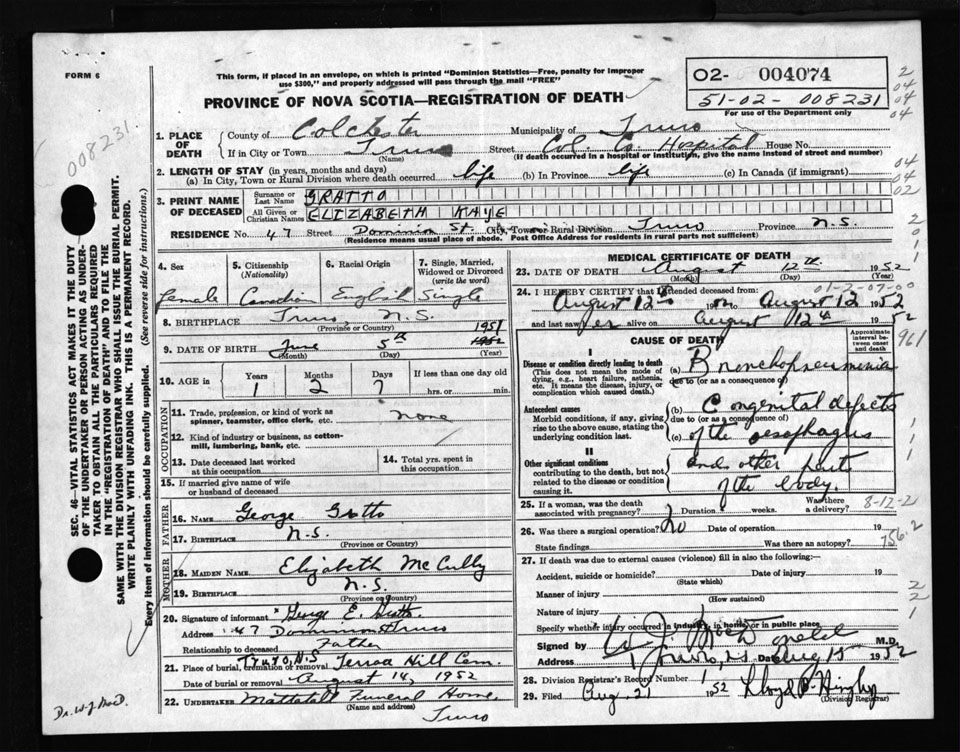 FORM 6
This form, if placed in an envelope, on which is printed "Dominion Statistics—Free, penalty for improper
use $300," and properly addressed will pass through the mail "FREE"
PROVINCE OF NOVA SCOTIA—REGISTRATION OF DEATH
02- 004074
51-02- 008231
For use of the Department only
008231
SEC. 46 VITAL STATISTICS ACT MAKES IT THE DUTY
OF THE UNDERTAKER OR PERSON ACTING AS UNDER-
TAKER TO OBTAIN ALL THE PARTICULARS REQUIRED
IN THE "REGISTRATION OF DEATH" AND TO FILE THE
SAME WITH THE DIVISION REGISTRAR WHO SHALL ISSUE THE BURIAL PERMIT.
WRITE PLAINLY WITH UNFADING INK. THIS IS A PERMANENT RECORD.
Every item of information should be carefully supplied. (See reverse side for instructions.)
1. PLACE OF DEATH
County of Colchester Municipality of Truro
If in City or Town Truro Street Col. Co. Hospital House No.
(Name) (If death occurred in a hospital or institution, give the name instead of street and number)
2. LENGTH OF STAY (in years, months and days)
(a) In City, Town or Rural Division where death occurred life (b) In Province life (c) In Canada (if immigrant)
3. PRINT NAME OF DECEASED
Surname or Last Name GRATTO
All Given or Christian Names ELIZABETH KAYE
RESIDENCE No. 47 Street Dominion St. City, Town or Rural Division Truro Province N.S.
(Residence means usual place of abode. Post Office Address for residents in rural parts not sufficient)
4. Sex Female
5. Citizenship (Nationality) Canadian
6. Racial Origin English
7. Single, Married, Widowed or Divorced (write the word) Single
8. BIRTHPLACE Truro, N.S.
(Province or Country)
9. DATE OF BIRTH June 5th 1951 1952
(Month) (Day) (Year)
10. AGE in Years 1 Months 2 Days 7 If less than one day hrs. or min.
OCCUPATION
11. Trade, profession, or kind of work as spinner, teamster, office clerk, etc. none
12. Kind of industry or business, as cotton-mill, lumbering, bank, etc.
13. Date deceased last worked at this occupation
14. Total yrs. spent in this occupation
15. If married give name of wife or husband of deceased
FATHER
16. NAME George Gratto
17. BIRTHPLACE N.S.
(Province or Country)
MOTHER
18. MAIDEN NAME Elizabeth McCully
19. BIRTHPLACE N.S.
(Province or Country)
20. Signature of informant George E. Gratto
Address 47 Dominion Truro
Relationship to deceased Father
21. Place of burial, cremation or removal Truro, N.S. Hill Cem.
Date of burial or removal August 14, 1952
22. UNDERTAKER Mattatall Funeral Home.
(Name and address)
Truro
MEDICAL CERTIFICATE OF DEATH
23. DATE OF DEATH August 12th 1952
(Month) (Day) (Year)
01-2-07-00
24. I HEREBY CERTIFY that I attended deceased from:
August 12 to August 12 1952
and last saw her alive on August 12th 1952
CAUSE OF DEATH
Approximate interval between onset and death
I
Disease or condition directly leading to death
(This does not mean the mode of dying, e.g., heart failure, asthenia, etc. It means the disease, injury, or complication which caused death.)
(a) Bronchopneumonia
due to (or as a consequence of)
Antecedent causes
Morbid conditions, if any, giving rise to the above cause, stating the underlying condition last.
(b) Congenital defects
due to (or as a consequence of)
(c) of the oesophagus
II
Other significant conditions
contributing to the death, but not related to the disease or condition causing it.
and other parts
of the body.
25. If a woman, was the death associated with pregnancy? Duration weeks. Was there a delivery? 8-12-2
26. Was there a surgical operation? no Date of operation 19
State findings Was there an autopsy? 756.2
27. If death was due to external causes (violence) fill in also the following:—
Accident, suicide or homicide? Date of injury 19
(State which)
Manner of injury
(How sustained)
Nature of injury
Specify whether injury occurred in industry, in home, or in public place.
Signed by M.D.
Address Truro, N.S. Date Aug 15 1952
28. Division Registrar's Record Number
29. Filed Aug. 21 1952 Lloyd
(Division Registrar)